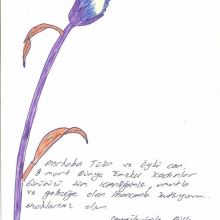 Merhaba Tülin ve Öykü can,
8 mart Dünya Emekçi Kadınlar
Gününü tüm içtenliğimle, umutla
ve geleceğe olan inancımla kutluyorum.